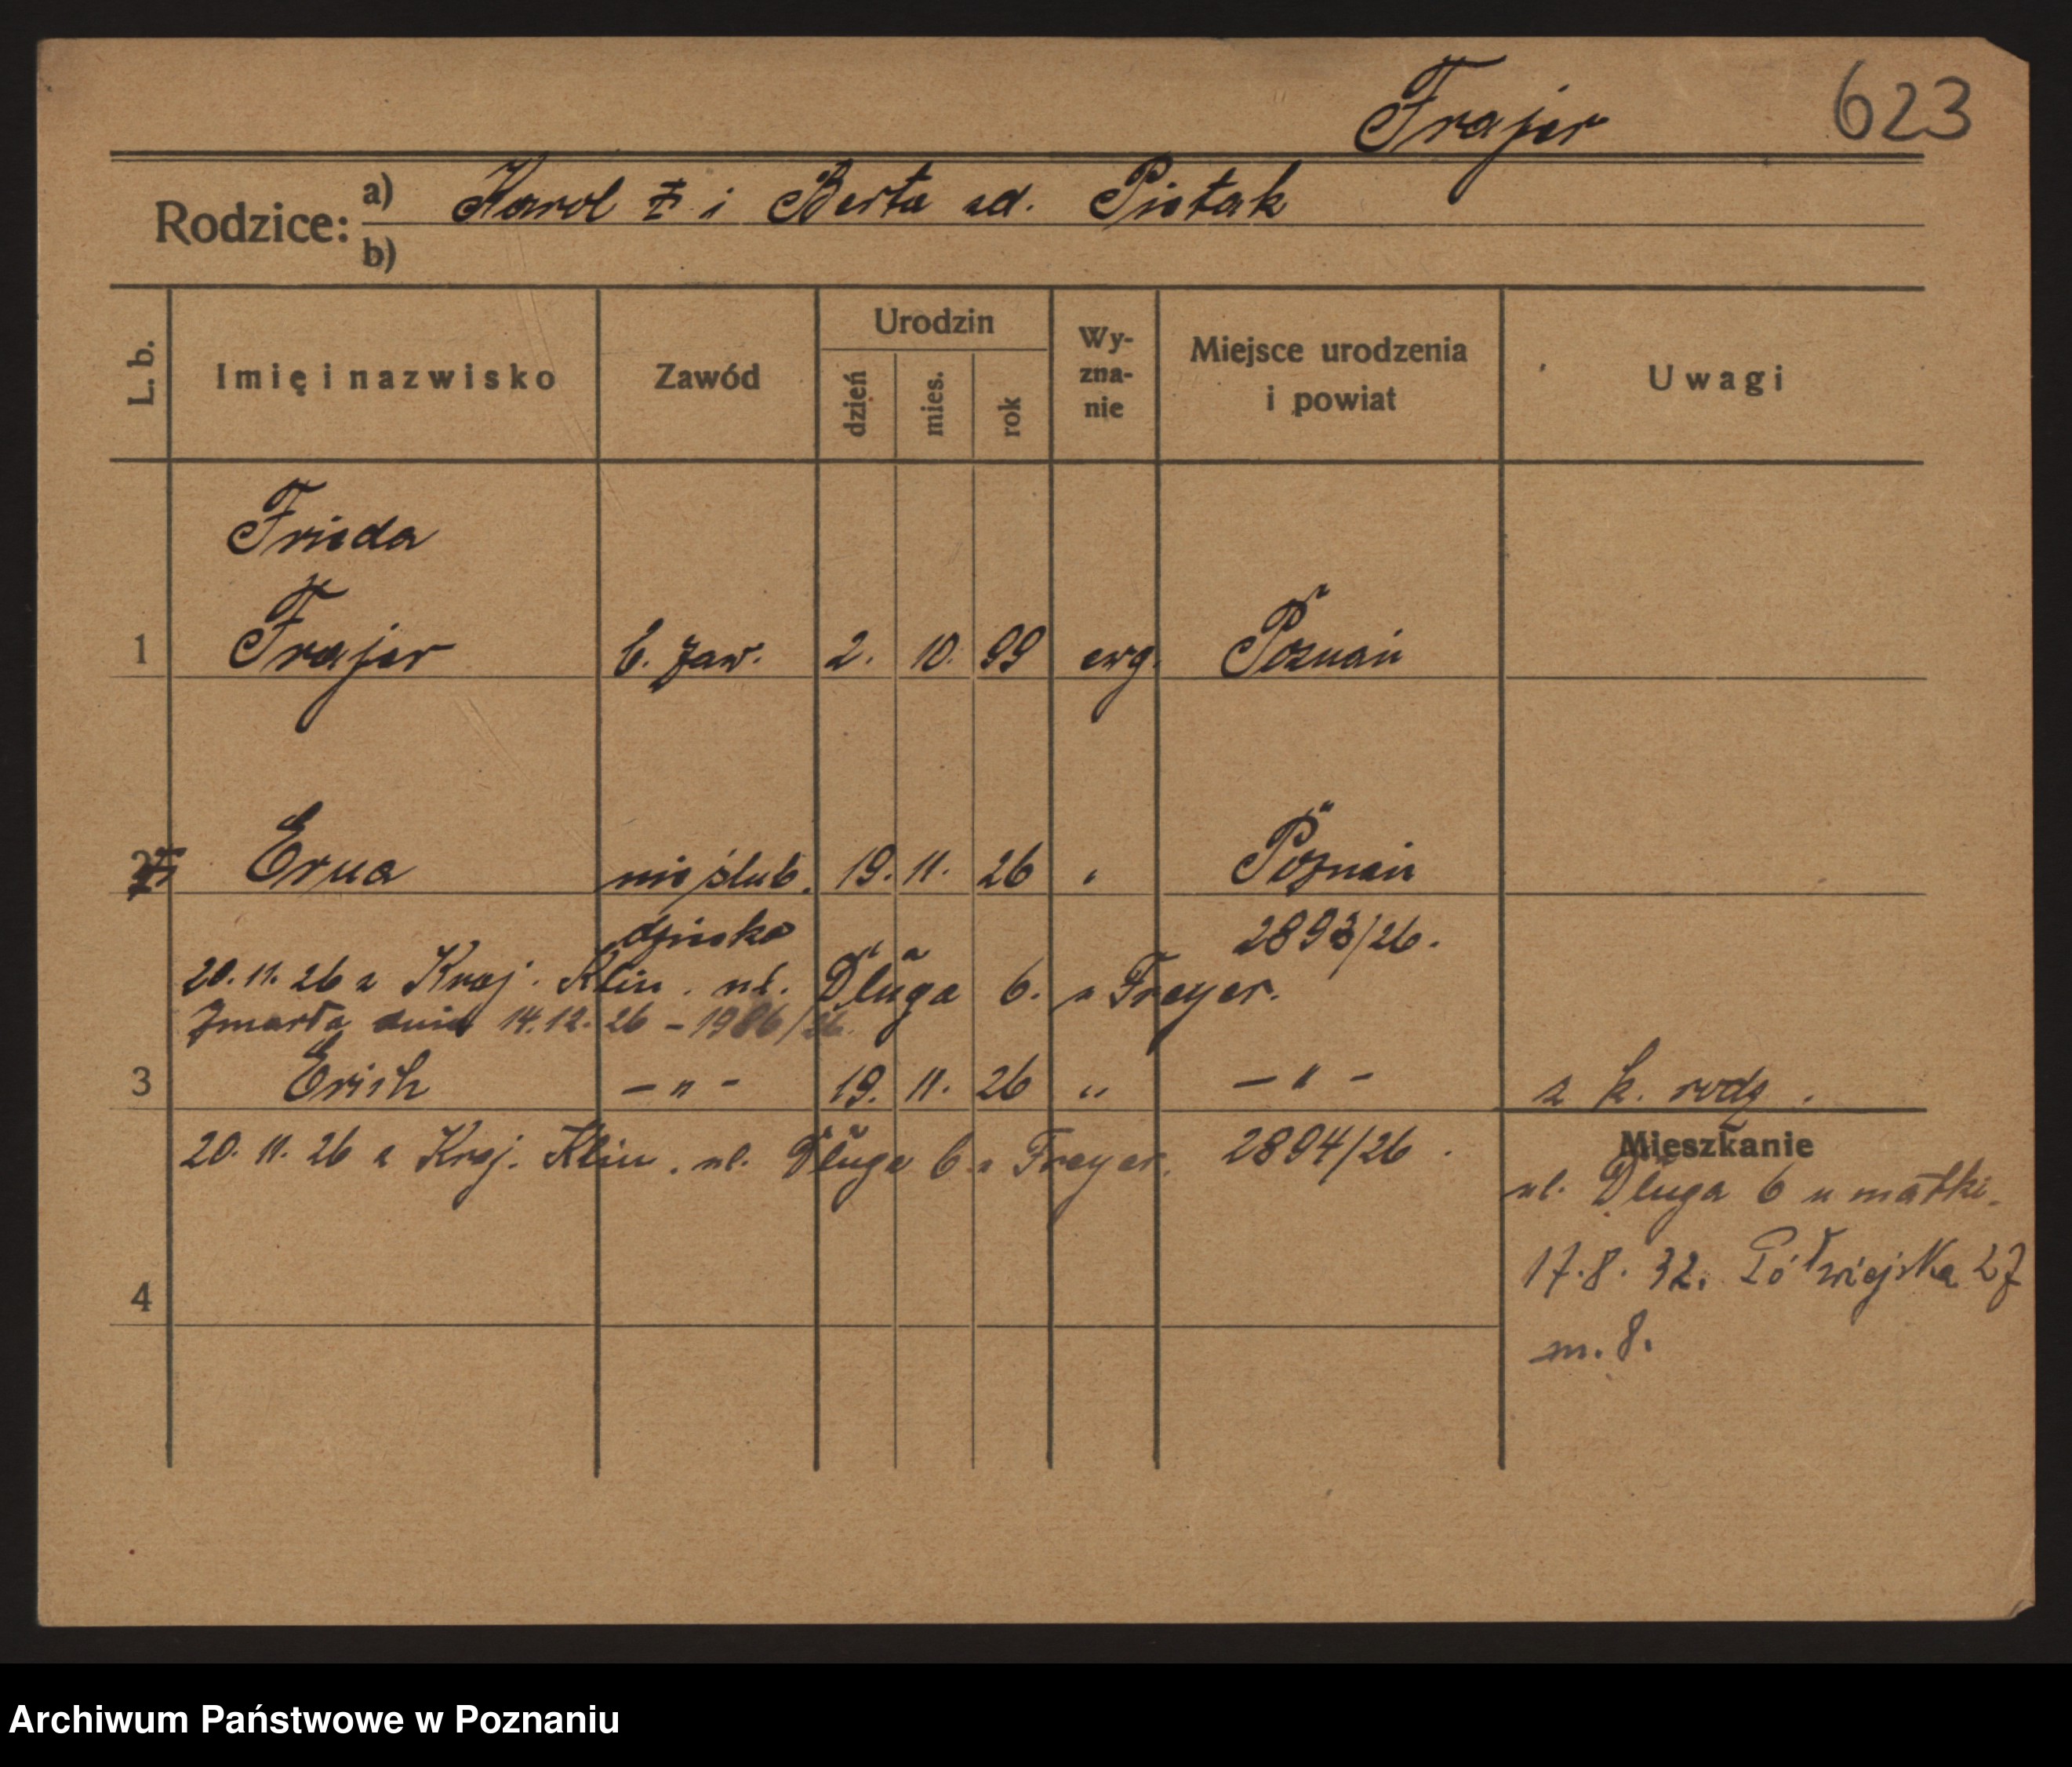 Frajer 623
Rodzice: a) Karol i Berta zd. Pietak
b)
L. b. Imię i nazwisko Zawód Urodzin dzień mies. rok Wy-zna-nie Miejsce urodzenia i powiat Uwagi
Frieda
1 Frajer b. zaw. 2. 10. 99 ewg. Poznań
2 Erna nieślub. 19. 11. 26 " Poznań
dziecko 2893/26.
20.11.26 z Kraj. Klin. ul. Długa 6. u Freyer.
Zmarła dnia 14.12.26 - 1986/26.
3 Erich - " - 19. 11. 26 " - " - z k. rodz.
20.11.26 z Kraj. Klin. ul. Długa 6 u Freyer. 2894/26.
Mieszkanie
ul. Długa 6 u matki.
17.8.32. Półwiejska 27
4
m. 8.
Archiwum Państwowe w Poznaniu